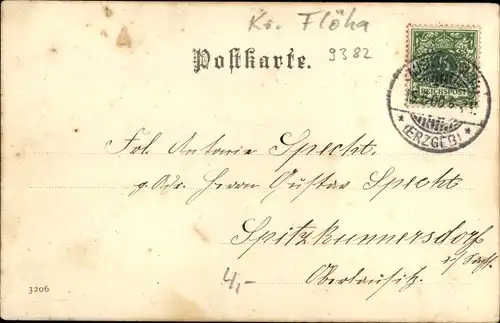 Kr. Flöha
9382
Postkarte.
5
REICHSPOST
* (ERZGEB) *
Frl. Antonie Specht.
p. Adr. Herrn Gustav Specht
Spitzkunnersdorf
i/Sachs.
Oberlausitz.
4,-
3206